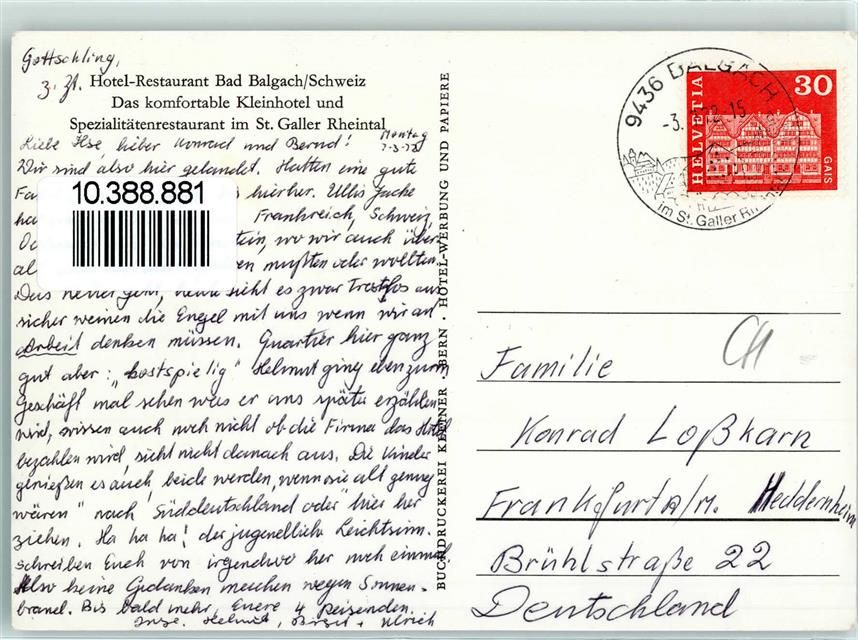 Gottschling,
z. Zt. Hotel-Restaurant Bad Balgach/Schweiz
Das komfortable Kleinhotel und
Spezialitätenrestaurant im St. Galler Rheintal
Montag
Liebe Ilse, lieber Konrad und Bernd!
Wir sind also hier gelandet. Hatten eine gute
Fa hierher. Ullis Jacke
ha Frankreich, Schweiz,
wo wir auch über
al en mußten oder wollten.
Das heute sieht es zwar trostlos aus
sicher weinen die Engel mit uns wenn wir an
Arbeit denken müssen. Quartier hier ganz
gut aber: „kostspielig" Helmut ging eben zum
Geschäft mal sehen was er uns später erzählen
wird, wissen auch noch nicht ob die Firma das Hotel
bezahlen wird, sieht nicht danach aus. Die Kinder
genießen es auch, beide werden, wenn sie alt genug
wären" nach Süddeutschland oder "hier her
ziehen. Ha ha ha! der jugendliche Leichtsinn.
schreiben Euch von irgendwo her noch einmal
Also keine Gedanken machen wegen Sonnen-
brand. Bis bald mehr, Euere 4 Reisenden.
Inge, Helmut, Birgit + Ulrich
10.388.881
BUCHDRUCKEREI KETTNER · BERN · HOTEL-WERBUNG UND PAPIERE
9436 BALGACH
-3.
72-15
im St. Galler Rheintal
HELVETIA
30
GAIS
CH
Familie
Konrad Loßkarn
Frankfurt a/M. Heddernheim
Brühlstraße 22
Deutschland